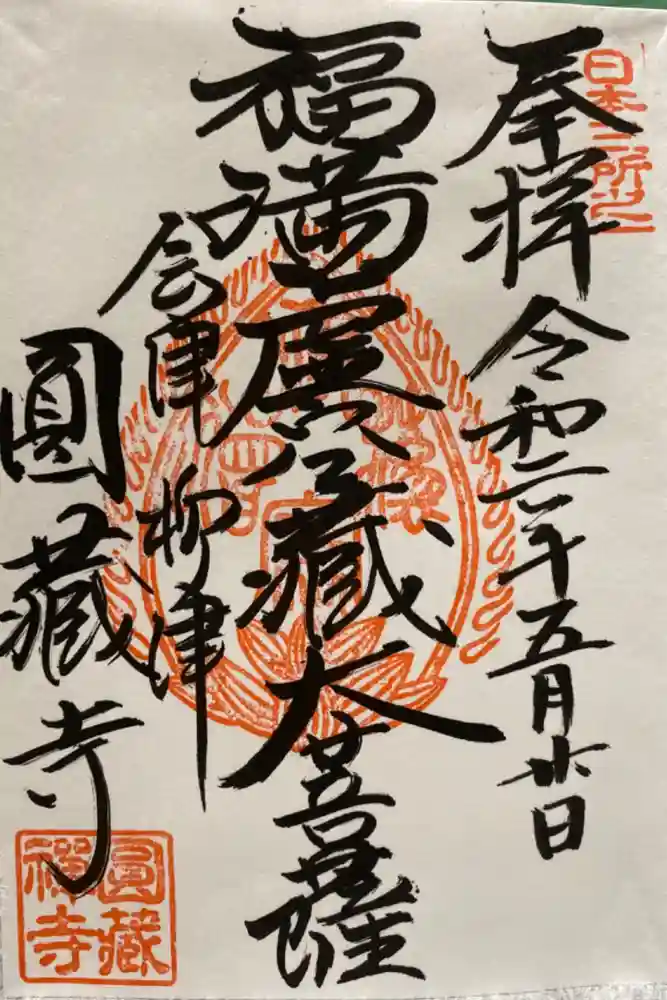 日本三所之一
奉拝
令和二年五月廿日
福満虚空藏大菩薩
会津
柳津
圓藏寺
圓藏
禪寺